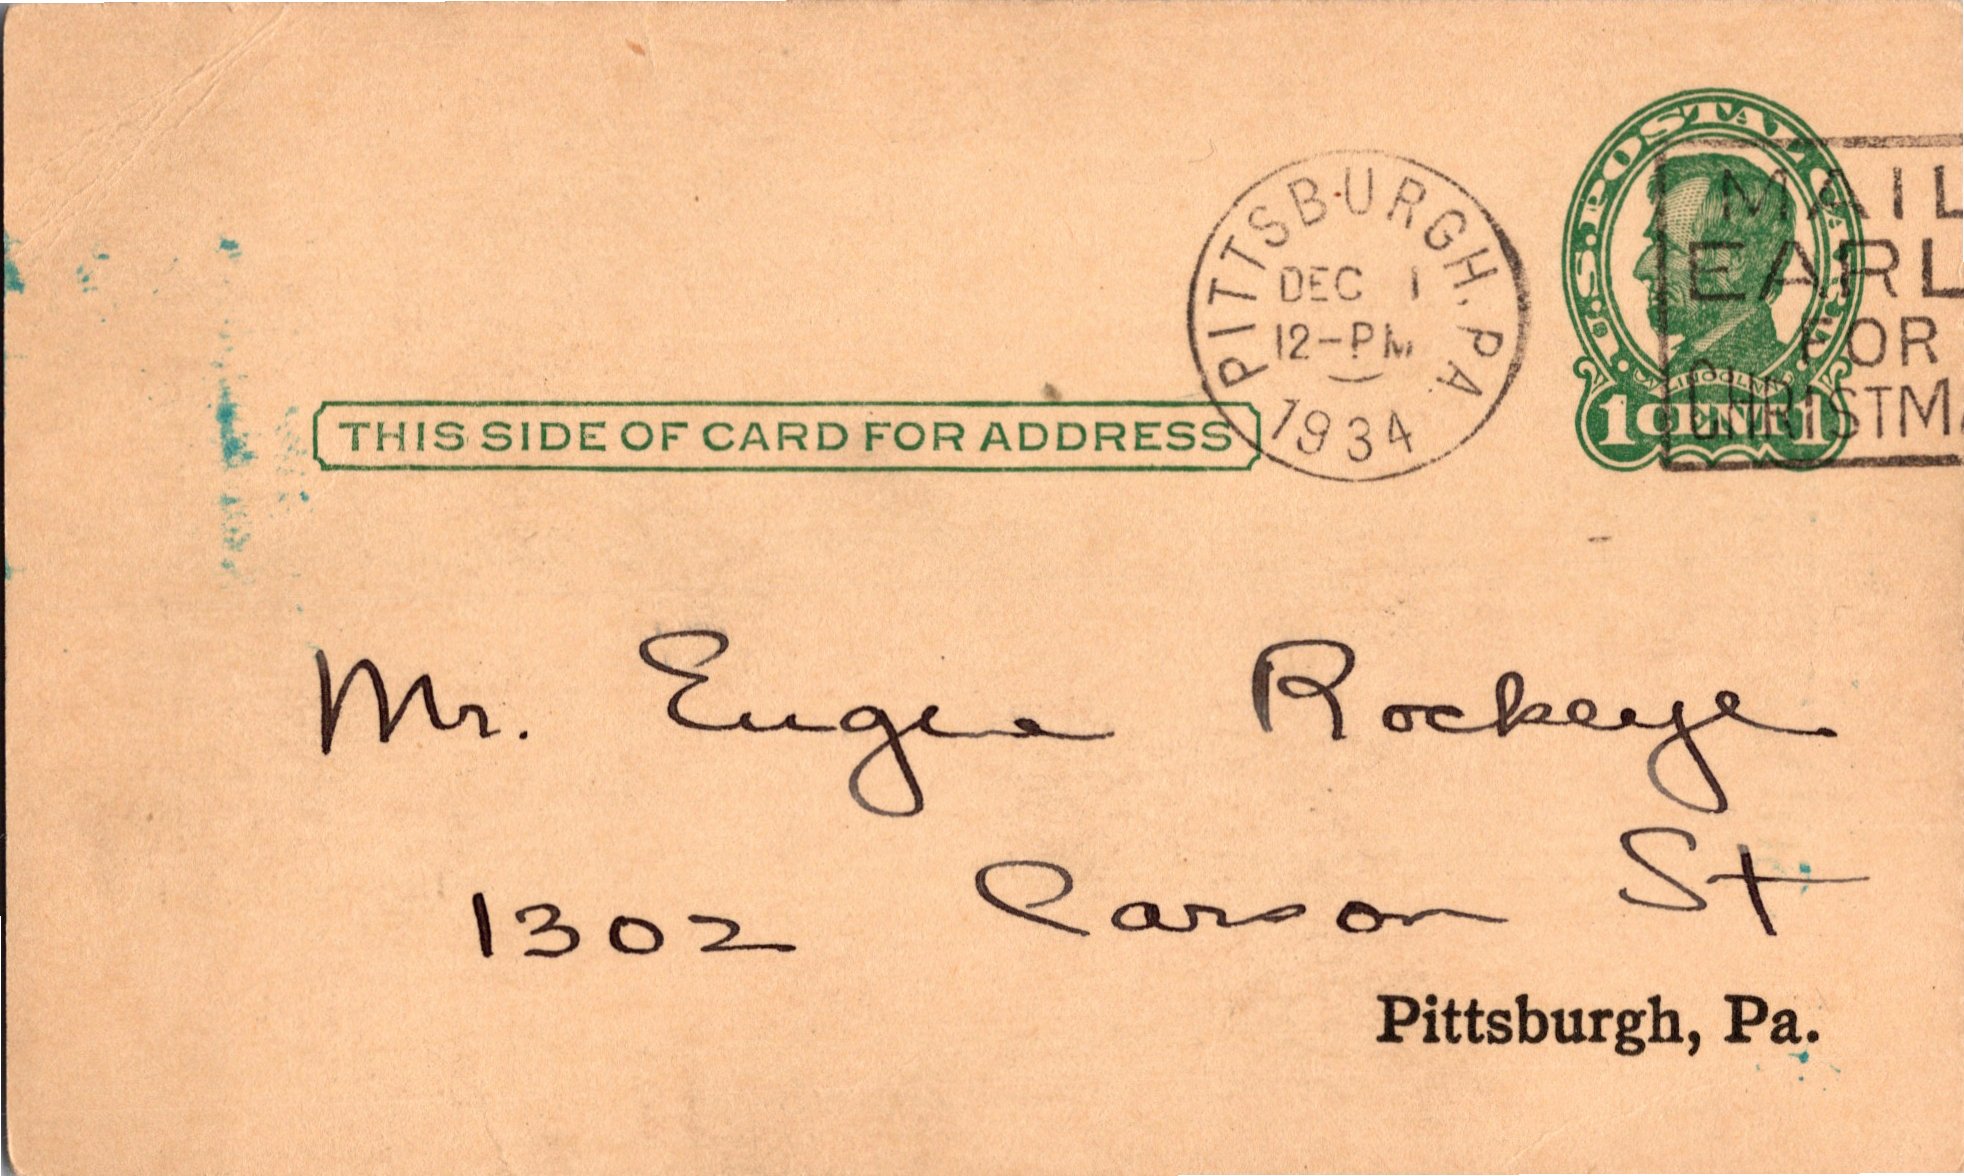 U.S. POSTAL CARD
PITTSBURGH, PA.
DEC 1
12-PM
1934
MAIL
EARL
FOR
CHRISTMA
A. LINCOLN
1 CENT 1
THIS SIDE OF CARD FOR ADDRESS
Mr. Eugene Rockeye
1302 Carson St
Pittsburgh, Pa.